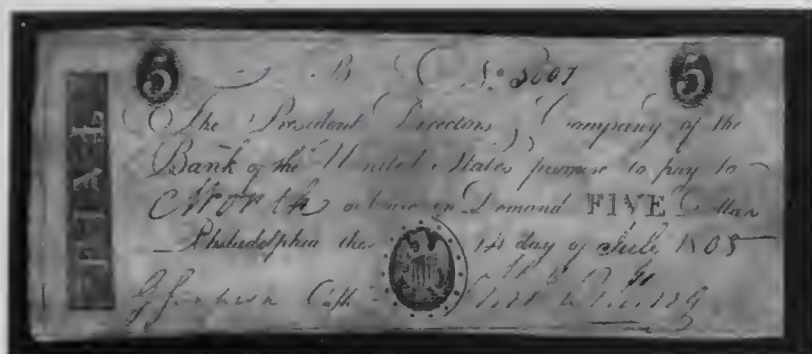 5 B No. 3007 5
The President Directors & Company of the
Bank of the United States promise to pay to
North or bearer on Demand FIVE Dollars
Philadelphia the 14 day of July 1805
Cash
FIVE